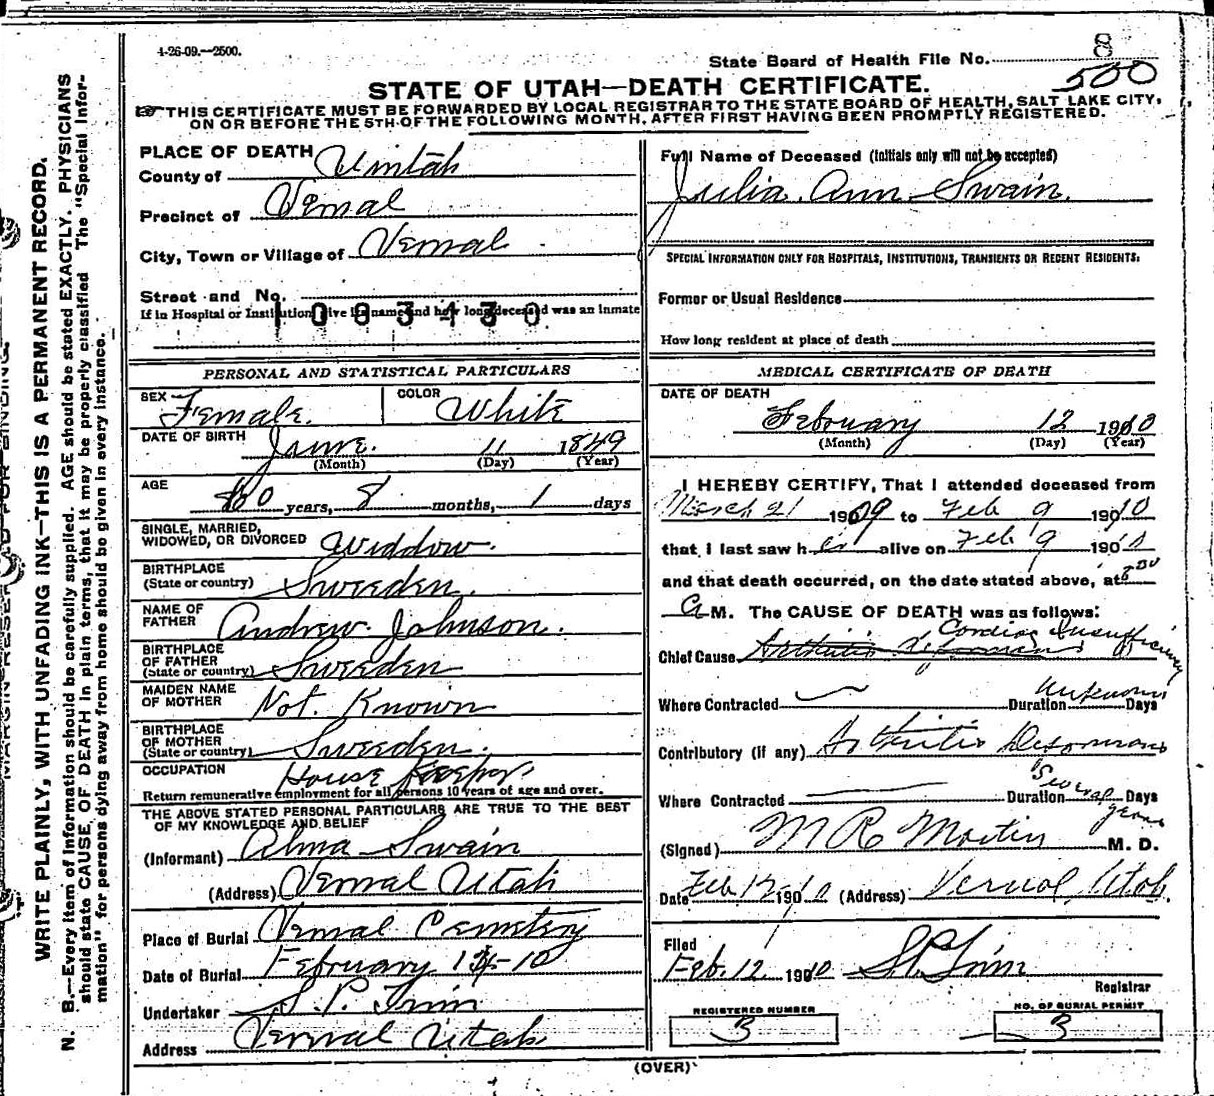 4-26-09.—2500.
State Board of Health File No. 8
500
STATE OF UTAH—DEATH CERTIFICATE.
THIS CERTIFICATE MUST BE FORWARDED BY LOCAL REGISTRAR TO THE STATE BOARD OF HEALTH, SALT LAKE CITY,
ON OR BEFORE THE 5TH OF THE FOLLOWING MONTH, AFTER FIRST HAVING BEEN PROMPTLY REGISTERED.
PLACE OF DEATH
County of Uintah
Precinct of Vernal
City, Town or Village of Vernal
Street and No.
If in Hospital or Institution give its name and how long deceased was an inmate
PERSONAL AND STATISTICAL PARTICULARS
SEX Female. COLOR White
DATE OF BIRTH June. 11 1849
(Month) (Day) (Year)
AGE 60 years, 8 months, 1 days
SINGLE, MARRIED,
WIDOWED, OR DIVORCED Widdow.
BIRTHPLACE
(State or country) Sweeden.
NAME OF
FATHER Andrew Johnson.
BIRTHPLACE
OF FATHER
(State or country) Sweeden
MAIDEN NAME
OF MOTHER Not. Known
BIRTHPLACE
OF MOTHER
(State or country) Sweeden.
OCCUPATION House Keeper
Return remunerative employment for all persons 10 years of age and over.
THE ABOVE STATED PERSONAL PARTICULARS ARE TRUE TO THE BEST
OF MY KNOWLEDGE AND BELIEF
(Informant) Alma Swain
(Address) Vernal Utah
Place of Burial Vernal Cemetery
Date of Burial February 1 -10
Undertaker S. P. Trim
Address Vernal Utah
Full Name of Deceased (Initials only will not be accepted)
Julia Ann Swain.
SPECIAL INFORMATION ONLY FOR HOSPITALS, INSTITUTIONS, TRANSIENTS OR RECENT RESIDENTS:
Former or Usual Residence
How long resident at place of death
MEDICAL CERTIFICATE OF DEATH
DATE OF DEATH
February 12 1910
(Month) (Day) (Year)
I HEREBY CERTIFY, That I attended deceased from
March 21 1909 to Feb 9 1910
that I last saw her alive on Feb 9 1910
and that death occurred, on the date stated above, at
A M. The CAUSE OF DEATH was as follows:
Cardiac Insufficiency
Chief Cause Arthritis Deformans
Where Contracted Duration Unknown Days
Contributory (if any) Arthritis Deformans
Where Contracted Duration Several Days
years
(Signed) M R Martin M. D.
Date Feb 12 1910 (Address) Vernal, Utah.
Filed
Feb. 12 1910 S. P. Trim
Registrar
REGISTERED NUMBER
3
NO. OF BURIAL PERMIT
3
(OVER)
WRITE PLAINLY, WITH UNFADING INK—THIS IS A PERMANENT RECORD.
N. B.—Every item of information should be carefully supplied. AGE should be stated EXACTLY. PHYSICIANS
should state CAUSE OF DEATH in plain terms, that it may be properly classified. The "Special Infor-
mation" for persons dying away from home should be given in every instance.